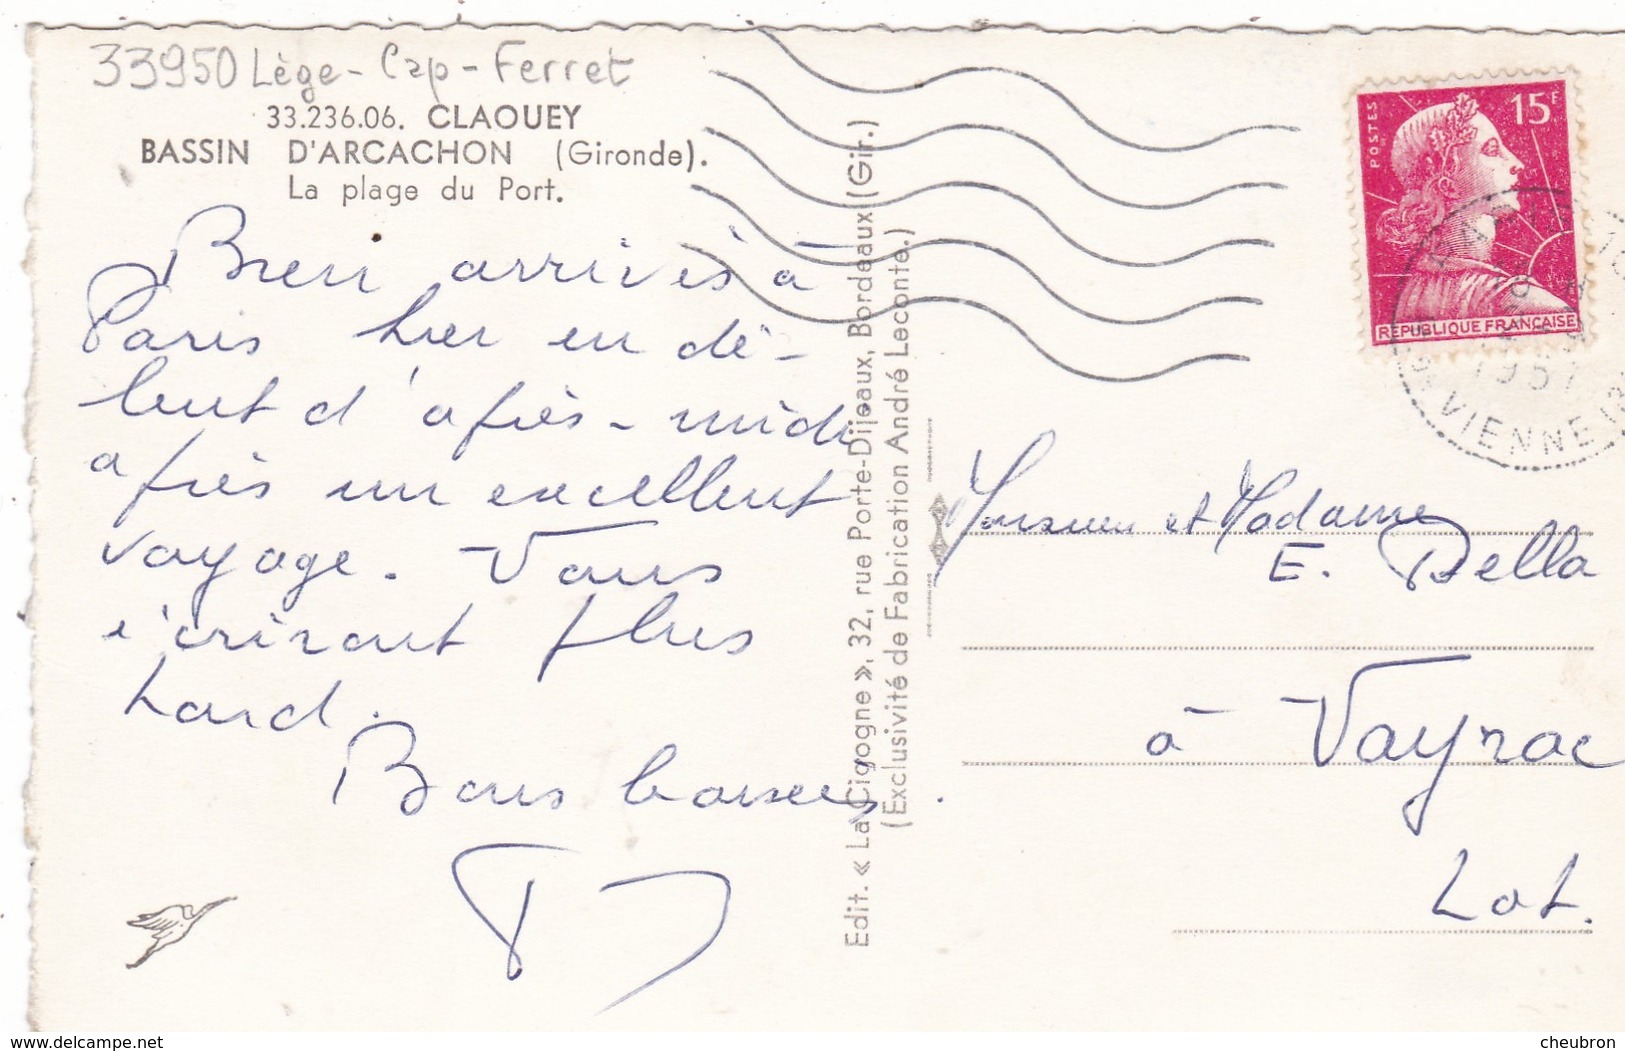 33950 Lège-Cap-Ferret
33.236.06. CLAOUEY
BASSIN D'ARCACHON (Gironde).
La plage du Port.
Bien arrivés à
Paris hier en dé-
but d'après-midi
après un excellent
voyage. Vous
écrirons plus
tard.
Bons baisers.
Edit. « La Cigogne », 32, rue Porte-Dijeaux, Bordeaux (Gir.)
(Exclusivité de Fabrication André Leconte.)
POSTES
15F
REPUBLIQUE FRANÇAISE
1957
VIENNE
Monsieur et Madame
E. Della
à Vayrac
Lot.
www.delcampe.net
cheubron